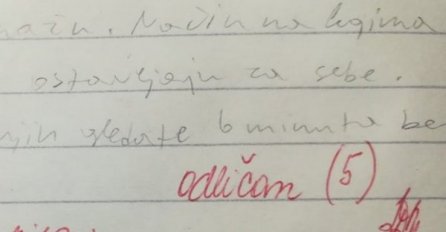 Način na kojima
ostavljaju za sebe.
gledate 6 minuta be
odličan (5)